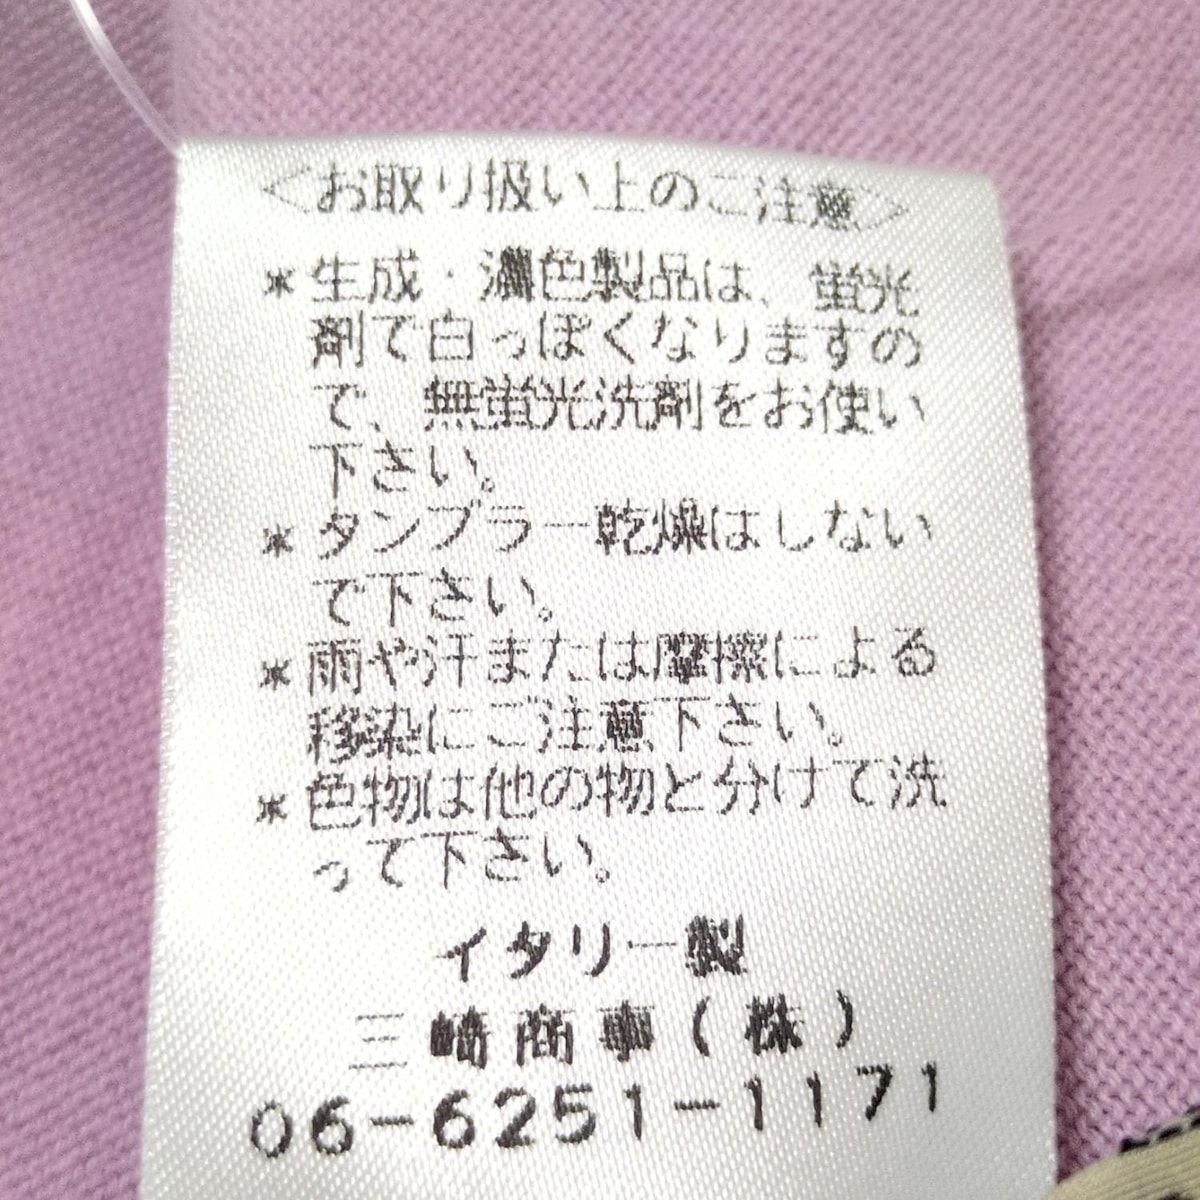 <お取り扱い上のご注意>
*生成・濃色製品は、蛍光
剤で白っぽくなりますの
で、無蛍光洗剤をお使い
下さい。
*タンブラー乾燥はしない
で下さい。
*雨や汗または摩擦による
移染にご注意下さい。
*色物は他の物と分けて洗
って下さい。
イタリー製
三崎商事(株)
06-6251-1171